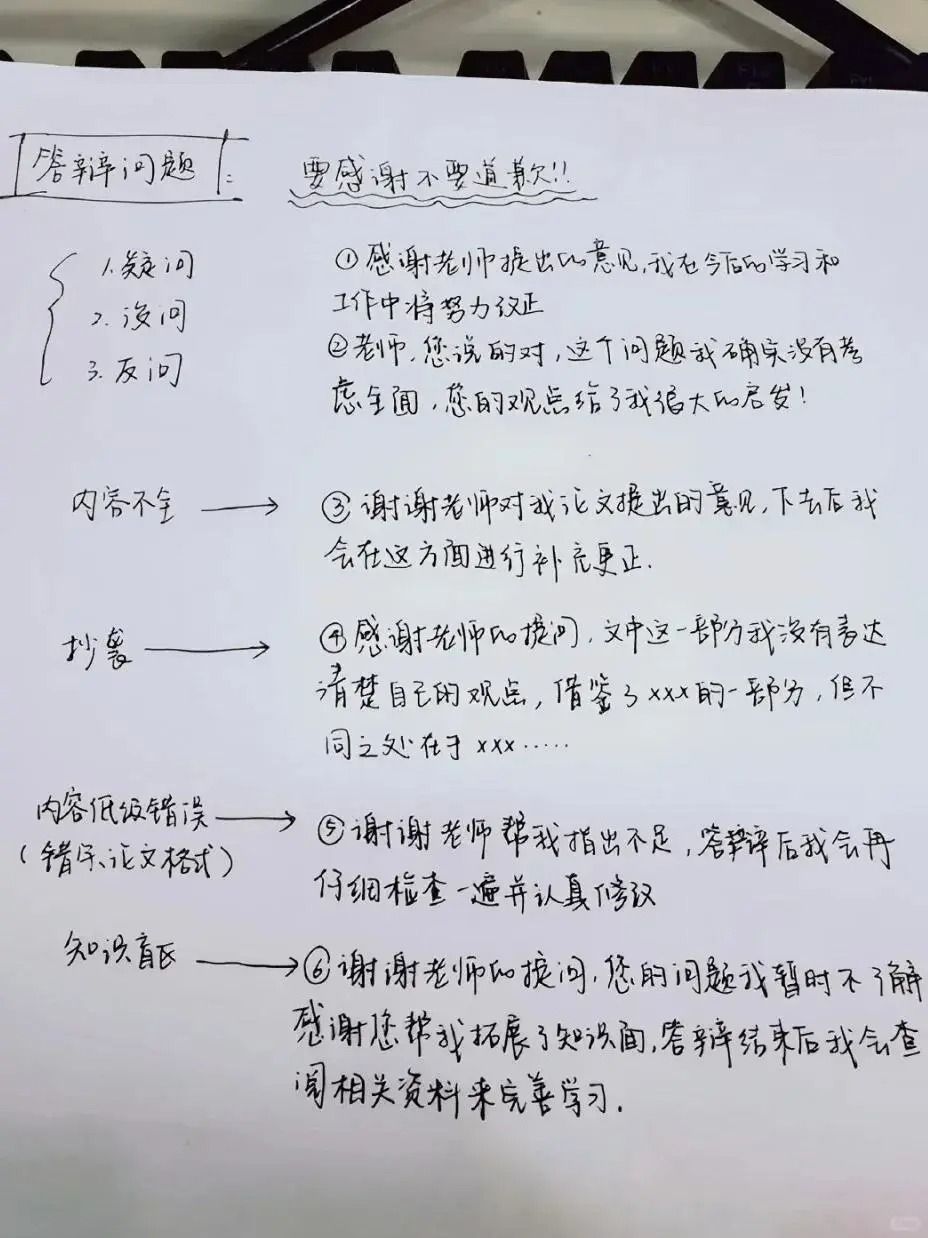 答辩问题:
要感谢不要道歉!!
1.疑问
2.设问
3.反问
①感谢老师提出的意见,我在今后的学习和
工作中将努力改正
②老师,您说的对,这个问题我确实没有考
虑全面,您的观点给了我很大的启发!
内容不全 →
③谢谢老师对我论文提出的意见,下去后我
会在这方面进行补充更正.
抄袭 →
④感谢老师的提问,文中这一部分我没有表达
清楚自己的观点,借鉴了xxx的一部分,但不
同之处在于xxx……
内容低级错误 →
(错字、论文格式)
⑤谢谢老师帮我指出不足,答辩后我会再
仔细检查一遍并认真修改
知识盲区 →
⑥谢谢老师的提问,您的问题我暂时不了解
感谢您帮我拓展了知识面,答辩结束后我会查
阅相关资料来完善学习.